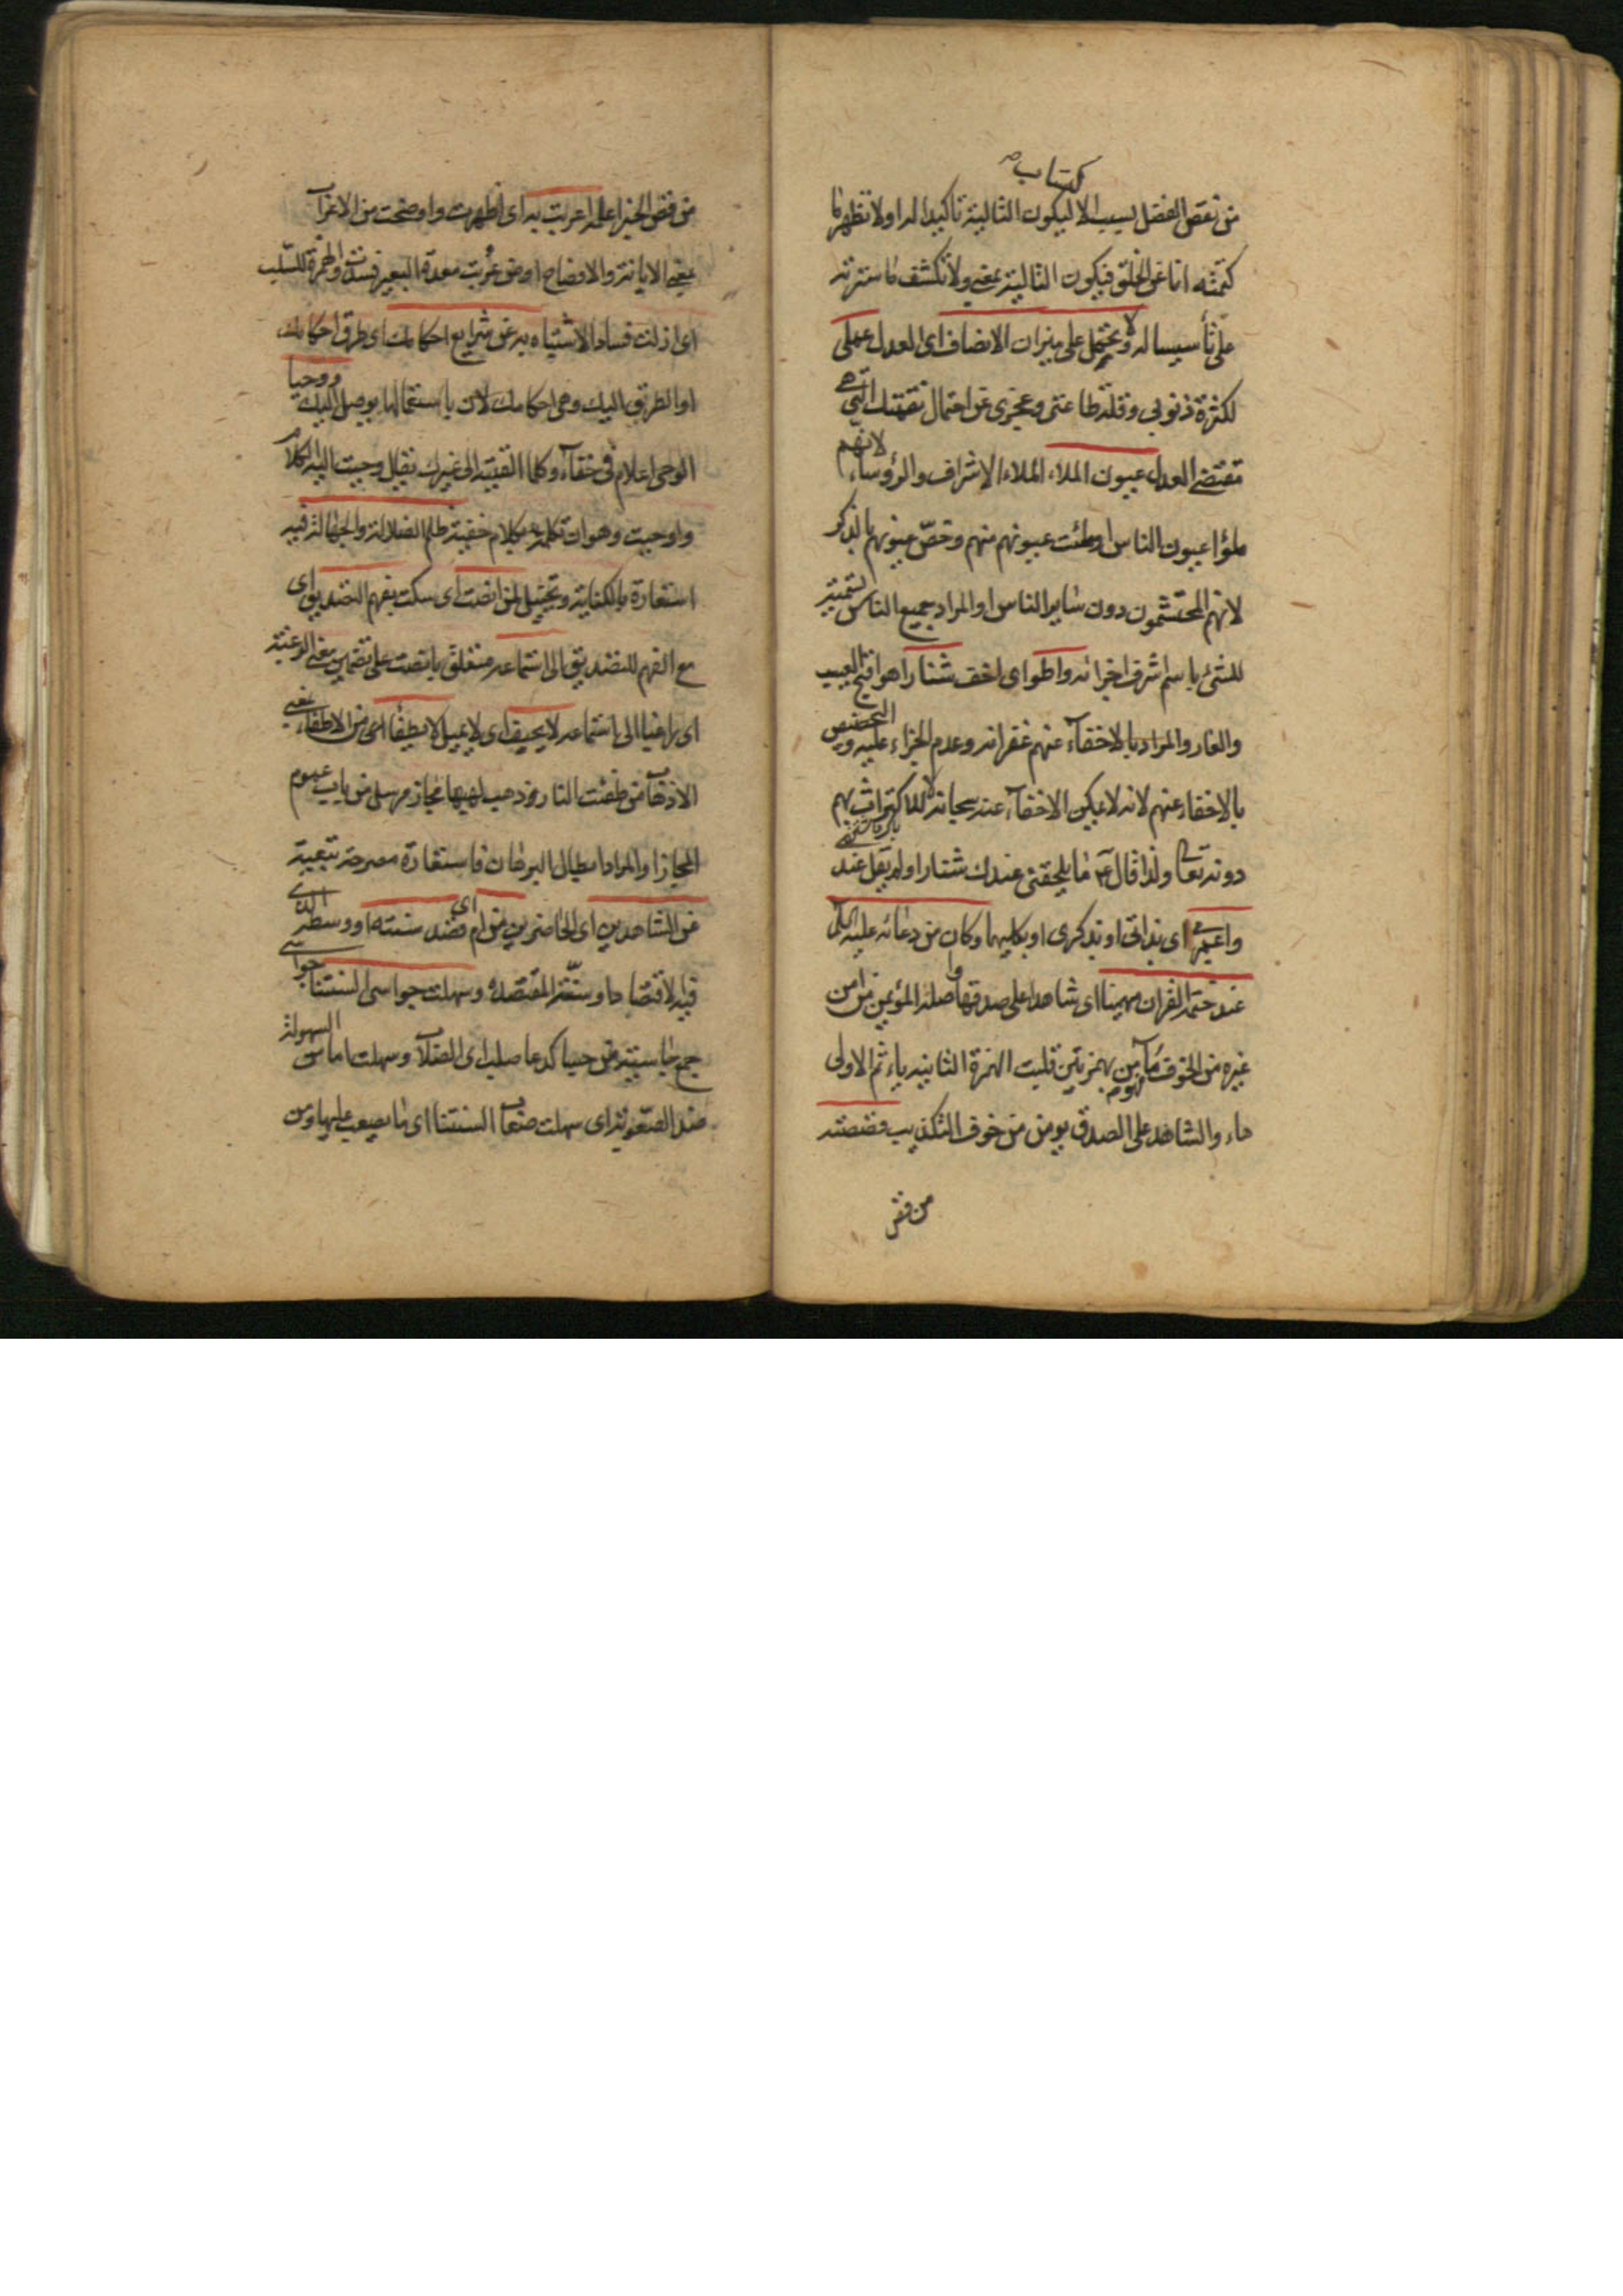 كتاب
من نقص الفضل لسبب الا ليكون الثالثة تاكيدا له اولا تظهر ما
كتمته اناعن الخلق فيكون الثالثة بمعنى ولا تكشف ما سترته
على تأسيسا له ولا تحمل على ميزان الانصاف اى العدل عملى
لكثرة ذنوبى وقلة طاعتى وعجزى عن احتمال نقمتك التى هى
مقتضى العدل عيون الملاء الملاء الاشراف والرؤساء لانهم
ملؤا عيون الناس او ملئت عيونهم منهم وخصّ عيونهم بالذكر
لانهم المحتشمون دون ساير الناس او المراد جميع الناس تسمية
للشئ باسم شرف اجزائه واطو اى اخف شنارا هو اقبح العيب
والعار والمراد بالاخفآء عنهم غفرانه وعدم الجزاء عليه والتخصيص
بالاخفاء عنهم لانه لا يمكن الاخفآء عنه سبحانه لا للاكتراث بهم
دونه تعالى ولذا قال ما يلحقنى عندك شنارا ولم يقل عند
اى بذاتى او بذكرى او بكليهما وكان من دعائه عليه السلم
عند ختم القران مهيمنا اى شاهدا على صدقها واصله المؤيمن من امن
غيره من الخوف مأأمن بهمزتين قلبت الهمزة الثانية ياء ثم الاولى
هاء والشاهد على الصدق يومن من خوف التكذيب فصصته
من قص
من قص الخبر اعلمه اعربت به اى اظهرت واوضحت من الاعراب
بمعنى الابانة والافصاح او من عربت معدة البعير فسدت والهمزة للسلب
اى ازلت فساد الاشتباه به عن شرايع احكامك اى طرق احكامك
او الطرق اليك وهى احكامك لان باستعمالها يوصل اليك ووحيا
الوحى اعلام فى خفآء وكلما القيته الى غيرك يقال وحيت اليه الكلام
واوحيت وهو ان تكلمه بكلام خفية ظلم الضلالة والجهالة فيه
استعارة بالكناية وتخييل لمن انصت اى سكت بفهم التصديق اى
مع الفهم للتصديق الى استماعه متعلق بانصت على تضمين معنى الرغبة
اى راغبا الى استماعه لا يحيف اى لا يميل لا يطفأ اى من الاطفاء بمعنى
الاذهاب من طفئت النار وذهب لهيبها مجاز مرسل من باب عموم
المجاز او المراد ابطال البرهان فاستعارة مصرحة تبعية
عن الشاهدين اى الحاضرين من ام اى قصد سنته اى وسطه الذى
فيه الاقتصاد او سنّته المقتصدة وسهلت جواسى السنتنا جواسى
جمع جاسية من جسا كدعا صلب اى الصلاب وسهلت اما من السهولة
ضد الصعوبة اى سهلت صعاب السنتنا اى ما يصعب عليها ومن